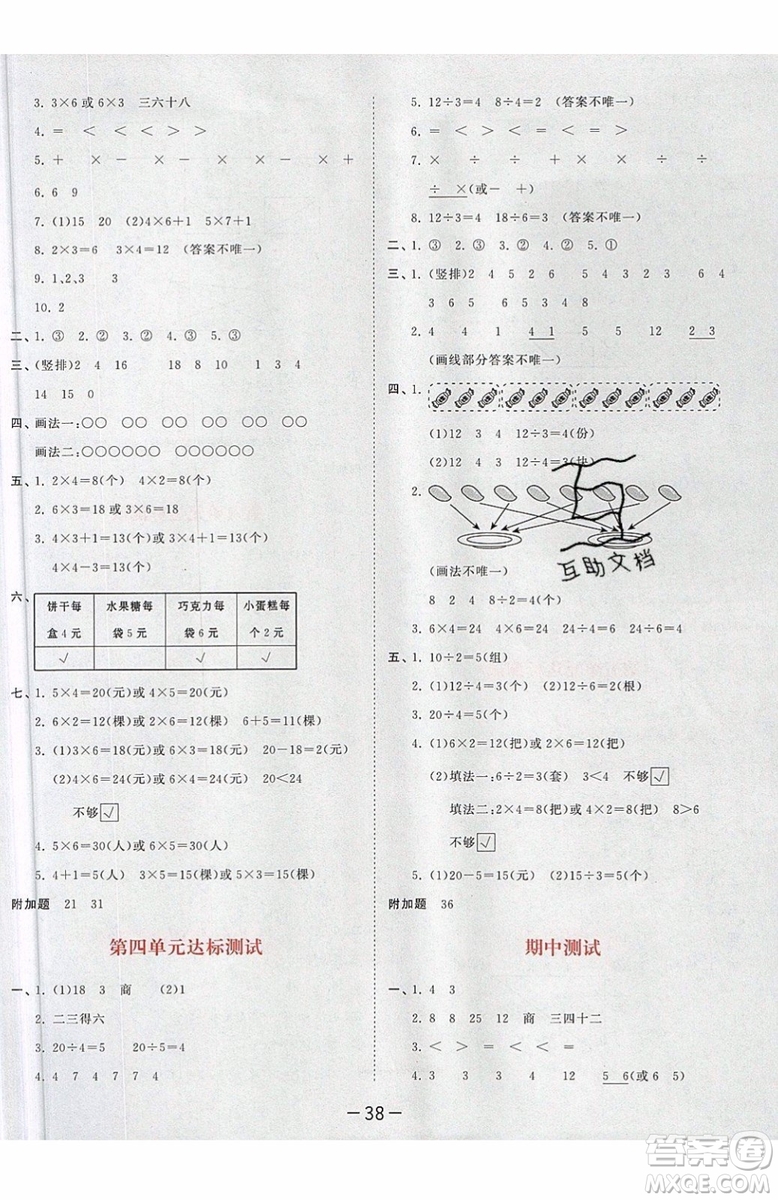 3. 3×6 或 6×3 三六十八
4. = < < < > >
5. + × - × - - × - × +
6. 6 9
7. (1)15 20 (2)4×6+1 5×7+1
8. 2×3=6 3×4=12 (答案不唯一)
9. 1、2、3 3
10. 2
二、1. ③ 2. ③ 3. ② 4. ③ 5. ③
三、(竖排)2 4 16 18 8 10 1 3 4
14 15 0
四、画法一:○○ ○○ ○○ ○○ ○○ ○○
画法二:○○○○○○ ○○○○○○
五、1. 2×4=8(个) 4×2=8(个)
2. 6×3=18 或 3×6=18
3. 4×3+1=13(个) 3×4+1=13(个)
5×3-2=13(个)
六、
饼干每盒4元 水果糖每袋5元 巧克力每袋6元 小蛋糕每个2元
√ √
七、1. 5×4=20(元)或 4×5=20(元)
2. 6×2=12(棵)或 2×6=12(棵) 6+5=11(棵)
3. (1)3×6=18(元)或 6×3=18(元) 20-18=2(元)
(2)4×6=24(元)或 6×4=24(元) 20<24
不够√
4. 5×6=30(人)或 6×5=30(人)
5. 4+1=5(人) 3×5=15(棵)或 5×3=15(棵)
附加题 21 31
第四单元达标测试
一、1. (1)18 3 商 (2)1
2. 二三得六
3. 20÷4=5 20÷5=4
4. 4 7 4 7 7 4
5. 12÷3=4 8÷4=2 (答案不唯一)
6. = < = < > <
7. × × ÷ × ÷ ÷
÷ ×(或- +)
8. 12÷3=4 18÷6=3 (答案不唯一)
二、1. ③ 2. ③ 3. ② 4. ② 5. ①
三、1. (竖排)2 4 5 2 5 4 3 6 4
3 6 5 4 4 8
2. 4 4 1 4 1 5 2 3
(画线部分答案不唯一)
四、1.
(1)12 3 4 12÷3=4(份)
(2)12 4 3 12÷4=3(块)
2.
(画法不唯一)
8 2 4 8÷2=4(个)
3. 6×4=24 4×6=24 24÷6=4
五、1. 10÷2=5(组)
2. (1)12÷4=3(个) (2)12÷6=2(根)
3. 20÷4=5(个)
4. (1)6×2=12(把)或 2×6=12(把)
(2)填法一:6÷2=3(套) 3<4 不够√
填法二:2×4=8(把)或 4×2=8(把) 8>6
不够√
5. (1)20-5=15(个) (2)15÷3=5(个)
附加题 36
期中测试
一、1. 4 3
2. 8 8 25 12 商 三四十二
3. < > = < > =
4. 3 3 4 12 5 6(或 6 5)
互助文档
— 38 —
答案圈
MXQE.COM